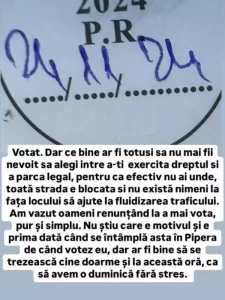 2024
P.R.
24/11/24
Votat. Dar ce bine ar fi totusi sa nu mai fii
nevoit sa alegi intre a-ti exercita dreptul si
a parca legal, pentru ca efectiv nu ai unde,
toată strada e blocata si nu există nimeni la
fața locului să ajute la fluidizarea traficului.
Am vazut oameni renunțând la a mai vota,
pur și simplu. Nu știu care e motivul și e
prima dată când se întâmplă asta în Pipera
de când votez eu, dar ar fi bine să se
trezească cine doarme și la această oră, ca
să avem o duminică fără stres.